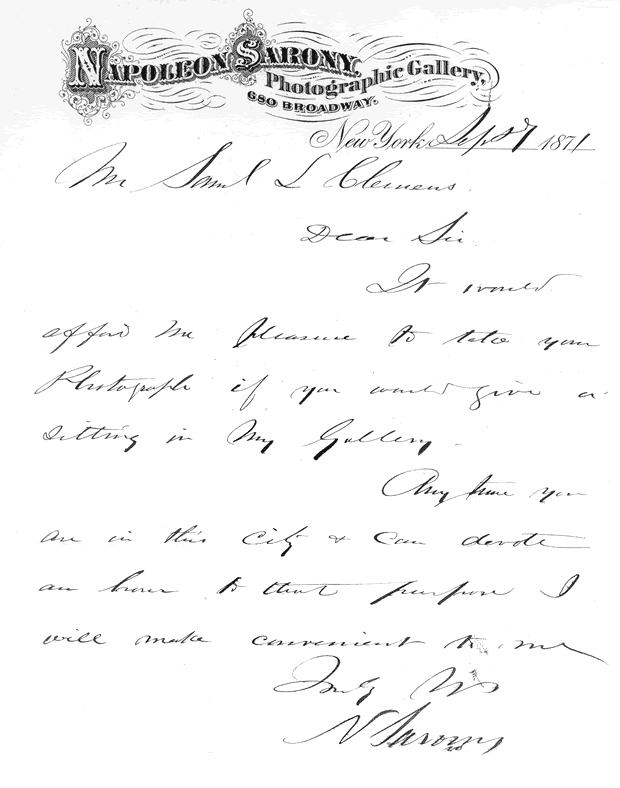 NAPOLEON SARONY,
Photographic Gallery,
680 BROADWAY.
New York Sept 7 1871
Mr Saml L Clemens.
Dear Sir.
It would
afford me pleasure to take your
Photograph if you would give a
sitting in my Gallery.
Any time you
are in this city & can devote
an hour to that purpose I
will make convenient to me
Truly Yrs
N Sarony